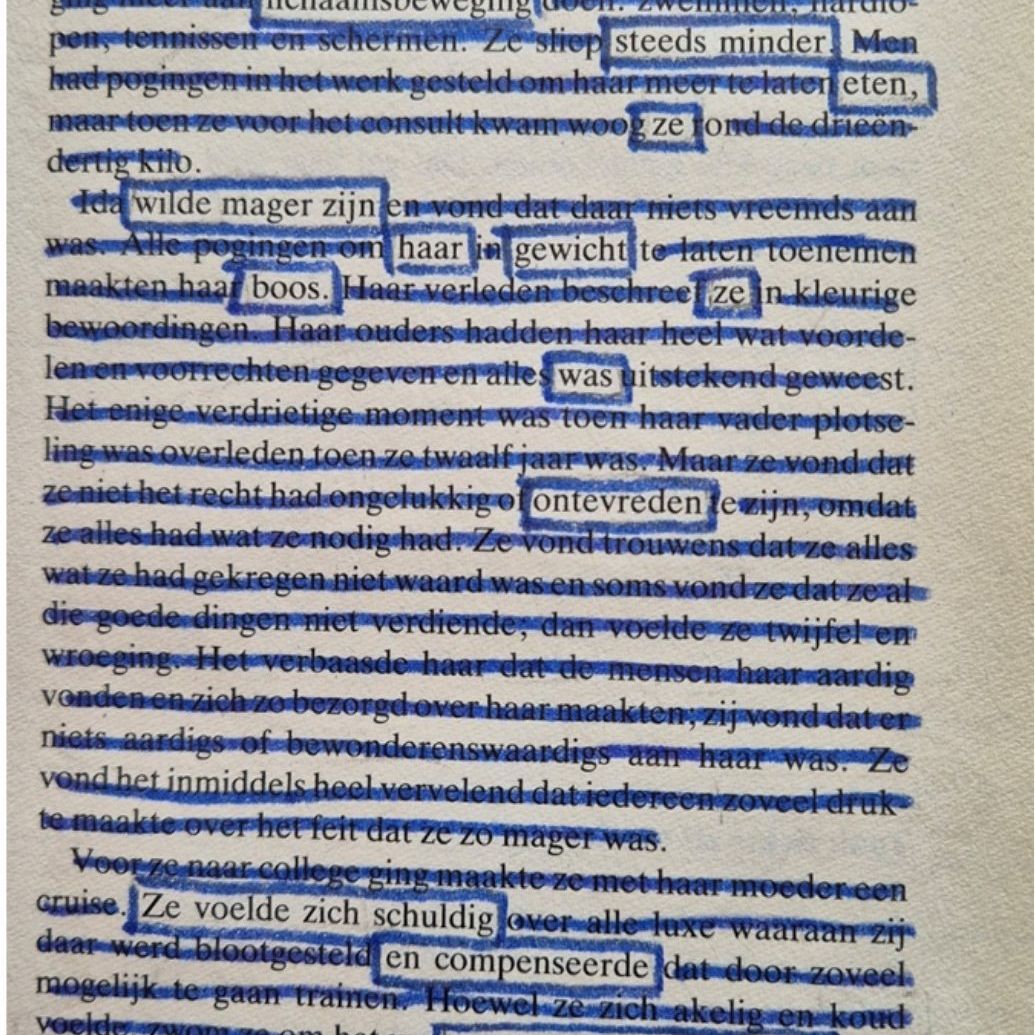 ging meer aan lichaamsbeweging doen: zwemmen, hardlo-
pen, tennissen en schermen. Ze sliep steeds minder. Men
had pogingen in het werk gesteld om haar meer te laten eten,
maar toen ze voor het consult kwam woog ze rond de drieën-
dertig kilo.
Ida wilde mager zijn en vond dat daar niets vreemds aan
was. Alle pogingen om haar in gewicht te laten toenemen
maakten haar boos. Haar verleden beschreef ze in kleurige
bewoordingen. Haar ouders hadden haar heel wat voorde-
len en voorrechten gegeven en alles was uitstekend geweest.
Het enige verdrietige moment was toen haar vader plotse-
ling was overleden toen ze twaalf jaar was. Maar ze vond dat
ze niet het recht had ongelukkig of ontevreden te zijn, omdat
ze alles had wat ze nodig had. Ze vond trouwens dat ze alles
wat ze had gekregen niet waard was en soms vond ze dat ze al
die goede dingen niet verdiende; dan voelde ze twijfel en
wroeging. Het verbaasde haar dat de mensen haar aardig
vonden en zich zo bezorgd over haar maakten; zij vond dat er
niets aardigs of bewonderenswaardigs aan haar was. Ze
vond het inmiddels heel vervelend dat iedereen zoveel druk-
te maakte over het feit dat ze zo mager was.
Voor ze naar college ging maakte ze met haar moeder een
cruise. Ze voelde zich schuldig over alle luxe waaraan zij
daar werd blootgesteld en compenseerde dat door zoveel
mogelijk te gaan trainen. Hoewel ze zich akelig en koud
voelde, zwom ze om het